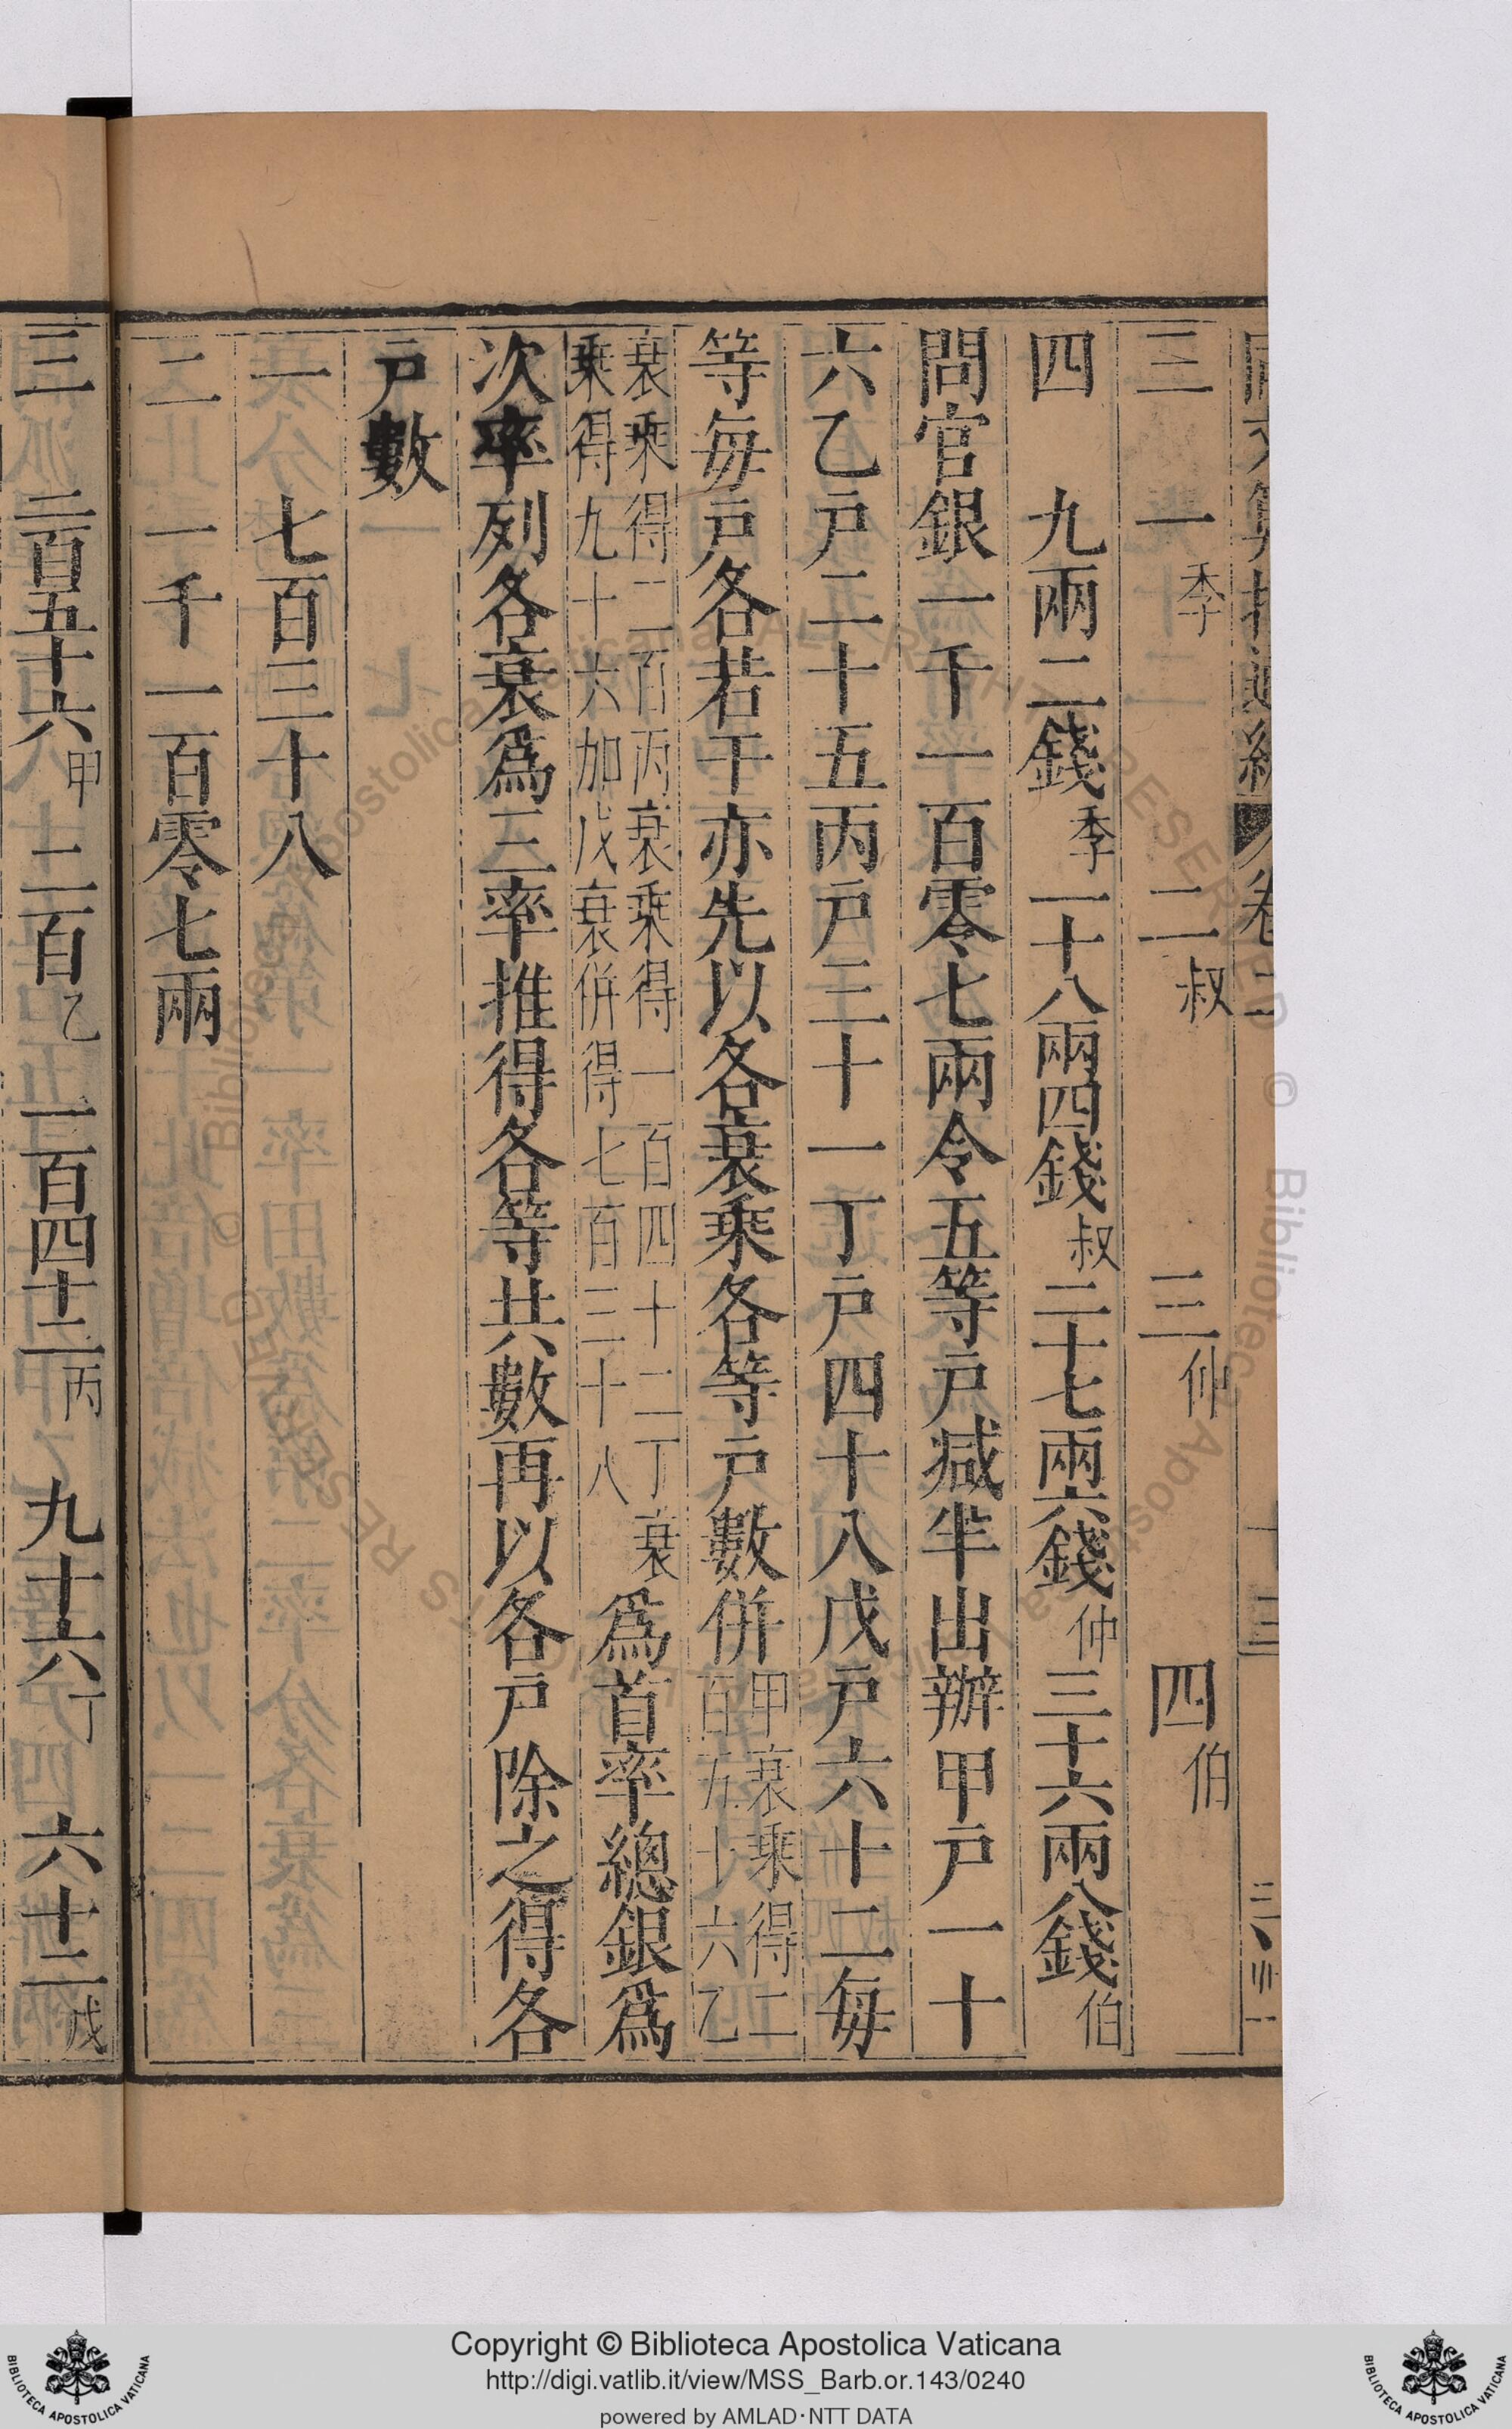 三 一季 二叔 三仲 四伯
四 九兩二錢季 一十八兩四錢叔 二十七兩六錢仲 三十六兩八錢伯
問官銀一千一百零七兩令五等戸减半出辦甲戸一十
六乙戸二十五丙戸三十一丁戸四十八戊戸六十二每
等每戸各若干亦先以各衰乘各等戸數併甲衰乘得二百五十六乙
衰乘得二百丙衰乘得一百四十二丁衰乘得九十六加戊衰併得七百三十八爲首率總銀爲
次率列各衰爲三率推得各等共數再以各戸除之得各
戸數
一 七百三十八
二 一千一百零七兩
三 二百五十六甲 二百乙 一百四十二丙 九十六丁 六十二戊
Copyright © Biblioteca Apostolica Vaticana
http://digi.vatlib.it/view/MSS_Barb.or.143/0240
powered by AMLAD·NTT DATA
BIBLIOTECA APOSTOLICA VATICANA
BIBLIOTECA APOSTOLICA VATICANA